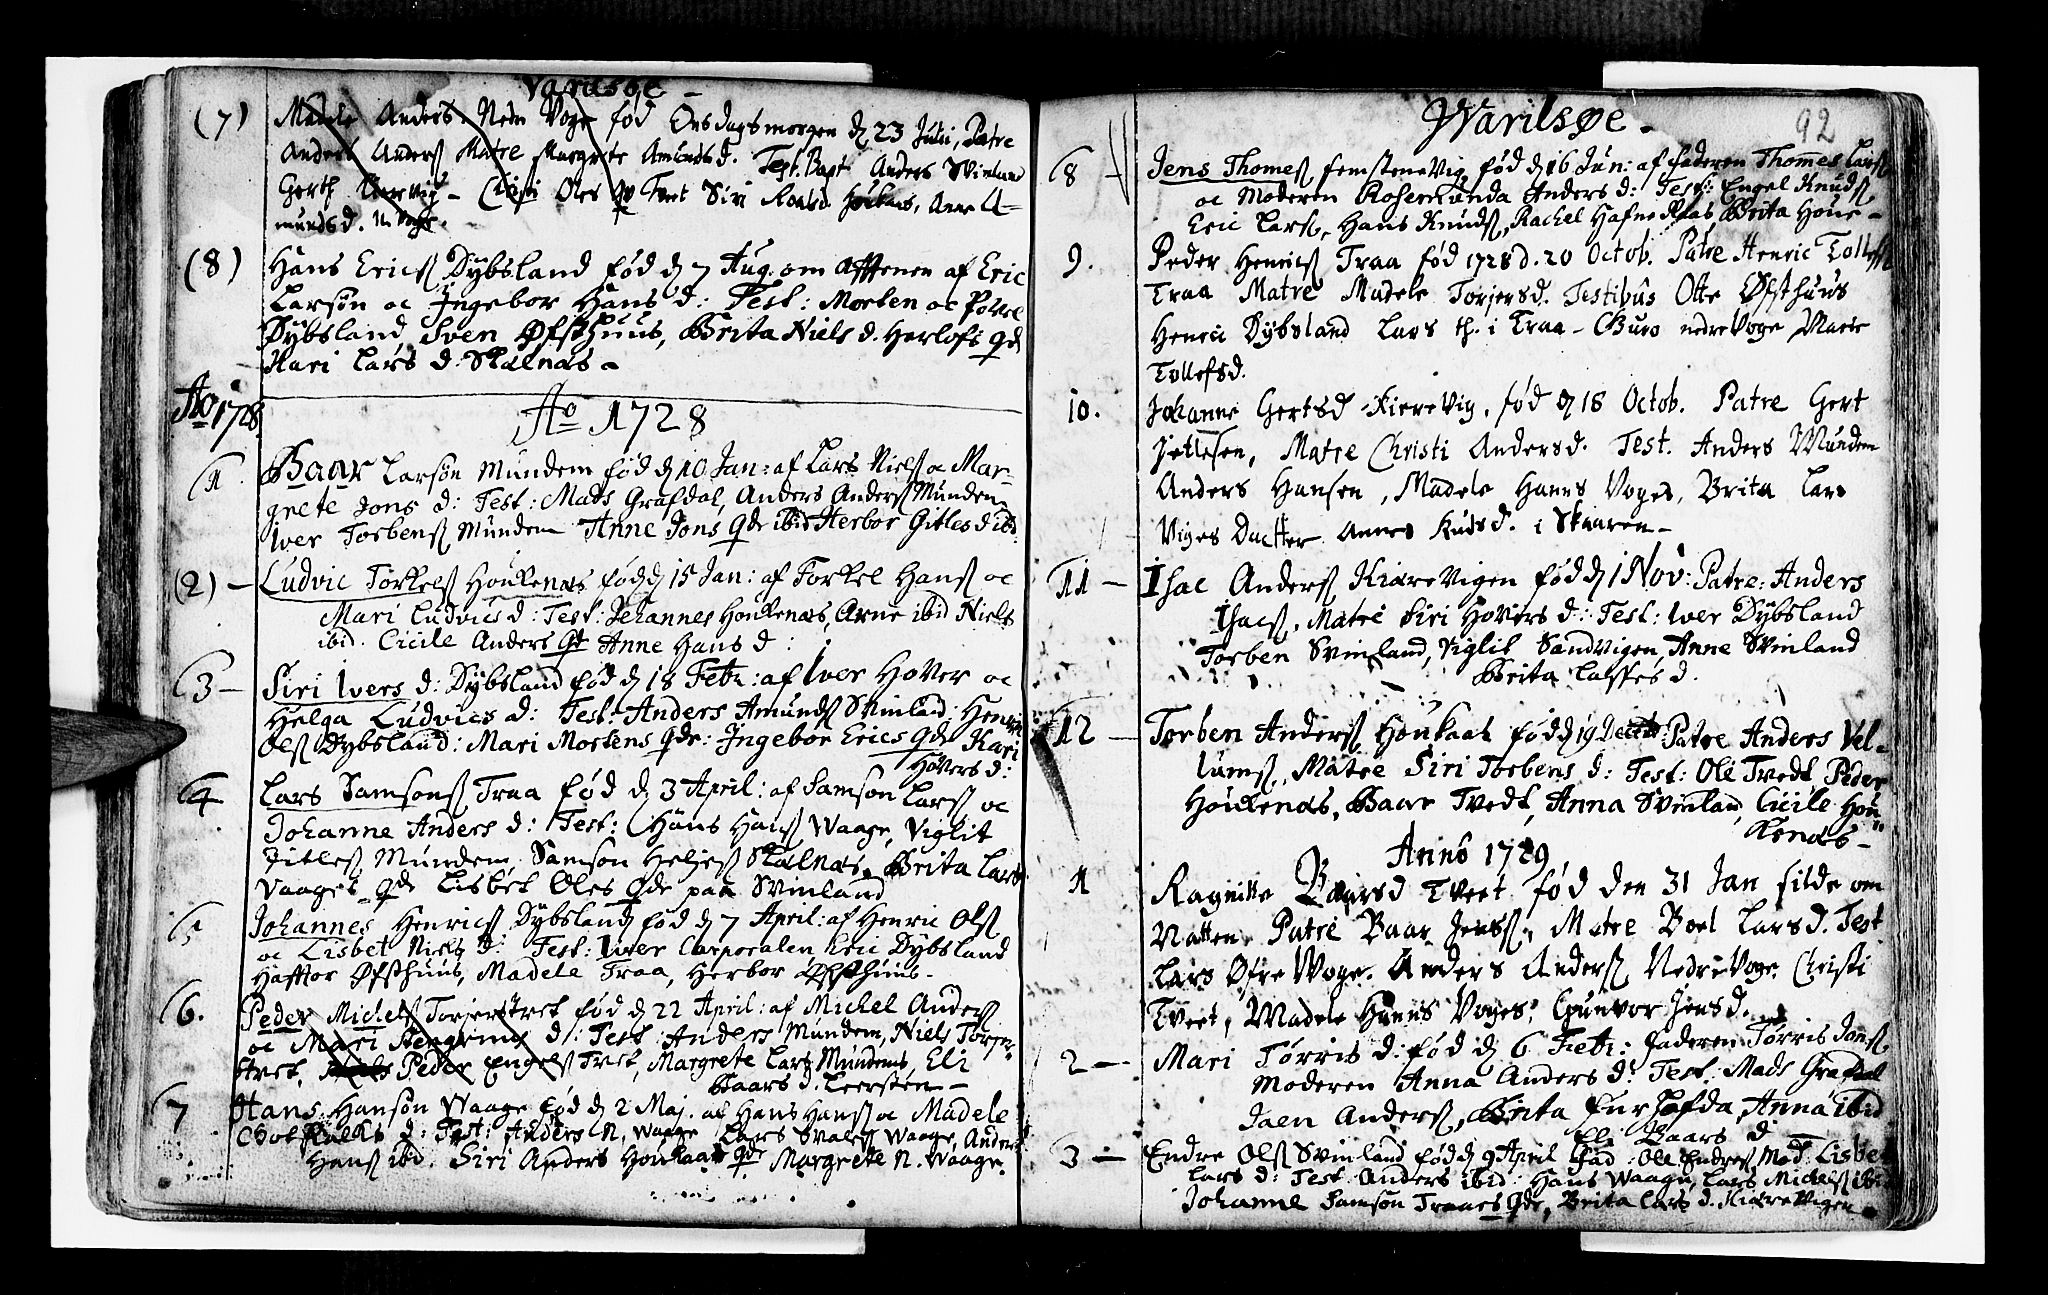 Varilsøe -
(7) Madele Anders Nedre Voge fød Onsdagsmorgen d 23 Julii, Patre
Anders Anders Matre Margrete Amunds d. Test. Bapt Anders Svinland
Gerth Kiervig - Christi Oles Qv Tvet Siri Houkaas, Anne A-
munds d. N. Voge.
(8) Hans Erics Dybsland fød d 7 Aug. om Afftenen af Eric
Larsøn oc Ingebor Hans d: Test: Morten oc Povel
Dybsland, Sven Øfsthuus, Brita Niels d. Herlofs qde
Kari Lars d. Skalnæs -
Ao 1728.
Ao 1728
1. Baar Larsøn Mundem fød d 10 Jan: af Lars Niels oc Mar-
grete Jons d: Test: Mads Grafdal, Anders Anders Mundem
Iver Torbens Mundem Anne Jons Qde ibid Herbor Gitles d ibd
(2) - Ludvic Torkels Houkenæs fød d 15 Jan: af Torkel Hans oc
Mari Ludvics d: Test: Johannes Houkenæs, Arne ibid Niels
ibid. Cicile Anders Qde Anne Hans d:
3 - Siri Ivers d: Dybsland fød d 18 Febr: af Iver Hover oc
Helga Ludvics d: Test: Anders Amunds Svinland: Henric
Ols Dybsland: Mari Mortens Qde: Ingebor Erics Qde Kari
Hovers d:
4 Lars Samsons Traa fød d 3 April: af Samson Lars oc
Johanne Anders d: Test: Hans Hans Waage, Viglit
Jitles Mundem Samson Heljes Skalnæs, Brita Lars
Vaages Qde Lisbet Oles Qde paa Svinland
5 Johannes Henrics Dybsland fød d 7 April: af Henric Ols
oc Lisbet Niels d: Test: Iver Corporalen Eric Dybsland
Hafftor Øfsthuus, Madele Traa, Herbor Øfsthuus -
6. Peder Michels Torjerstvet fød d 22 April: af Michel Anders
oc Mari Stengrims d: Test: Anders Mundem, Niels Torjer-
stvet, Peder Engels Tvet, Margrete Lars Mundems, Eli
Baars d. Leersten -
7 Hans Hansøn Waage fød d 2 Maj. af Hans Hans oc Madele
d: Test: Anders N. Waage Lars Waage, Anders
Hans ibid. Siri Anders Houkaas Qde Margrete N. Waage.
Warilsøe - 92
8 - Jens Thomes femstene Vig, fød d 16 Jun: af faderen Thomes Lars
oc Moderen Rosemunda Anders d: Test: Engel Knuds
Eric Lars, Hans Knuds, Rachel Hafne Raas Brita Houe -
9. Peder Henrics Traa fød 1728 d. 20 Octob. Patre Henric Tollefs
Traa Matre Madele Torjersd. Testibus Otte Øfsthuus
Henric Dybsland Lars th. i Traa - Guro nedre Voge Marie
Tollefsd.
10. Johanne Gertsd Kierevig, fød d 18 Octob. Patre Gert
Jetlesen, Matre Christi Andersd. Test. Anders Mundem
Anders Hansen, Madele Hanns Voges, Brita Lars
Viges Daatter Anne Knudsd. i Skaaren -
11 - Isac Anders Kiære Vigen fød d 1 Nov: Patre: Anders
Isacs, Matre Siri Hovers d: Test: Iver Dybsland
Torben Svinland, Viglit Sandvigen, Anne Svinland
Brita Lasses d.
12 - Torben Anders Houkaas fød d 19 Decemb Patre Anders Vel-
lums, Matre Siri Torbens d: Test: Ole Tvedt Peder
Houkenæs, Baar Tvedt, Anna Svinland Cicile Hou-
kenæs -
Anno 1729
1 Ragnilla Baarsd Tveet fød den 31 Jan silde om
Natten. Patre Baar Jenss, Matre Boel Larsd. Test
Lars Øfre Woge. Anders Anders Nedre Voge Christi
Tveet, Madele Hanns Voges, Gunvor Jensd.
2 - Mari Torris d: fød d 6 Febr: Faderen Torris Jons
Moderen Anna Anders d: Test: Mads Grafdal
Jaen Anders, Brita Furhofda, Anna ibid
Eli Baars d
3 - Endre Ols Svinland fød d 9 April Fad: Ole Endres Mod. Lisbet
Lars d: Test Anders ibid: Hans Waage, Lars Michels ibid
Johanne Samsøn Traaes Qde, Brita Lars d. Kiære Vigen